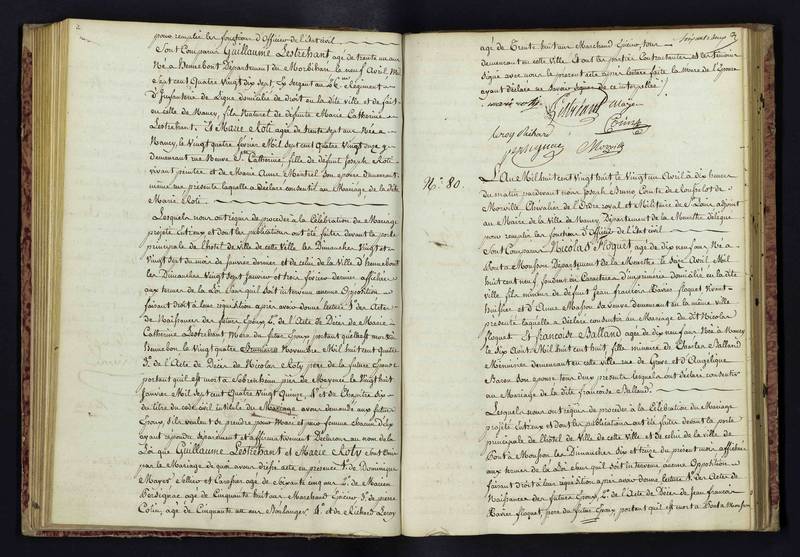 pour remplir les fonctions d'Officier de l'état civil
Sont Comparus Guillaume Lestrehant agé de trente un ans
Né a hennebont Département du Morbihan le neuf Avril Mil
Sept cent Quatre Vingt dix sept Ex Sergent au Régiment
d'Infanterie de Ligne domicilié de droit en la dite ville et de fait
en celle de Nancy, fils Naturel de défunte Marie Catherine
Lestrehant. Et Marie Roty agée de trente sept ans Née a
Nancy, le vingt quatre février Mil sept cent Quatre Vingt onze y
demeurant rue Neuve Ste Catherine, fille de défunt Joseph Roty
vivant peintre et de Marie Anne Mentrel son épouse demeurant
même rue présente laquelle a déclaré consentir au Mariage de la dite
Marie Roty.
Lesquels nous ont requis de procéder a la Célébration du Mariage
projeté Entr'eux et dont les publications ont été faites devant la porte
principale de l'hôtel de Ville de cette Ville les Dimanches Vingt et
Vingt sept du mois de janvier dernier et de celui de la Ville d'hennebont
les Dimanches Vingt sept Janvier et trois février dernier affichées
aux termes de la Loi sans qu'il soit intervenu aucune Opposition
faisant Droit a leur réquisition après avoir donné lecture 1° des Actes
de Naissances des futurs Epoux, 2° de l'Acte de Décès de Marie
Catherine Lestrehant Mère du futur Epoux portant qu'elle est morte a
hennebon le Vingt quatre Novembre Mil huit cent Quatre
3° de l'Acte de Décès de Nicolas Roty père de la future Epouse
portant qu'il est mort a près de Mayence le Vingt huit
Janvier Mil Sept cent Quatre Vingt Quinze, 4° et du Chapitre six
du titre du code civil intitulé du Mariage avons demandé aux futurs
Epoux, s'ils veulent se prendre pour Mari et pour femme chacun d'eux
ayant répondu séparément et affirmativement Déclarons au nom de la
Loi que Guillaume Lestrehant et Marie Roty sont Unis
par le Mariage de quoi avons dressé acte en présence 1° de Dominique
Mayer Sellier et Carossier agé de Soixante cinq ans 2° de Marien
Persignac agé de Cinquante huit ans Marchand Epicier 3° de pierre
Colin, agé de Cinquante un ans Boulanger 4° et de Richard Leroy
agé de Trente huit ans Marchand Epicier, tous
demeurant en cette Ville. Et ont les parties Contractantes et les témoins
signé avec nous le présent acte après lecture faite la Mère de l'Epouse
ayant déclaré ne savoir signer de ce interpellée.
marie roty
Lestrehant
Mayer
leroy Richard
Colin
persignac
Morville
N° 80.
L'An Mil huit cent Vingt huit le Vingt un Avril a dix heures
du matin pardevant nous Joseph Bruno Comte de
Morville Chevalier de l'Ordre royal et Militaire de St Louis adjoint
au Maire de la Ville de Nancy Département de la Meurthe délégué
pour remplir les fonctions d'Officier de l'état Civil
Sont Comparus Nicolas floquet agé de dix neuf ans Né a
Pont a Mousson Département de la Meurthe le seize Avril Mil
huit cent neuf fondeur en Caractères d'imprimerie domicilié en la dite
ville, fils mineur de défunt Jean francois Xavier floquet vivant
huissier et d'Anne Masson sa veuve demeurant en la même ville
présente laquelle a déclaré consentir au Mariage du dit Nicolas
floquet. Et francoise Balland agée de dix neuf ans Née a Nancy
le Six Août Mil huit cent huit fille mineure de Charles Balland
Menuisier demeurant en cette ville rue de Greve et d'Angélique
Baron Son épouse tous deux présents lesquels ont déclaré consentir
au Mariage de la dite francoise Balland.
Lesquels nous ont requis de procéder a la Célébration du Mariage
projeté Entr'eux et dont les publications ont été faites devant la porte
principale de l'hôtel de Ville de cette ville et de celui de la ville de
Pont a Mousson les Dimanches Six et treize du présent mois affichées
aux termes de la Loi sans qu'il soit intervenu aucune Opposition
faisant Droit a leur réquisition après avoir donné lecture 1° des Actes de
Naissances des futurs Epoux, 2° de l'Acte de Décès de Jean francois
Xavier floquet père du futur Epoux, portant qu'il est mort a Pont a Mousson